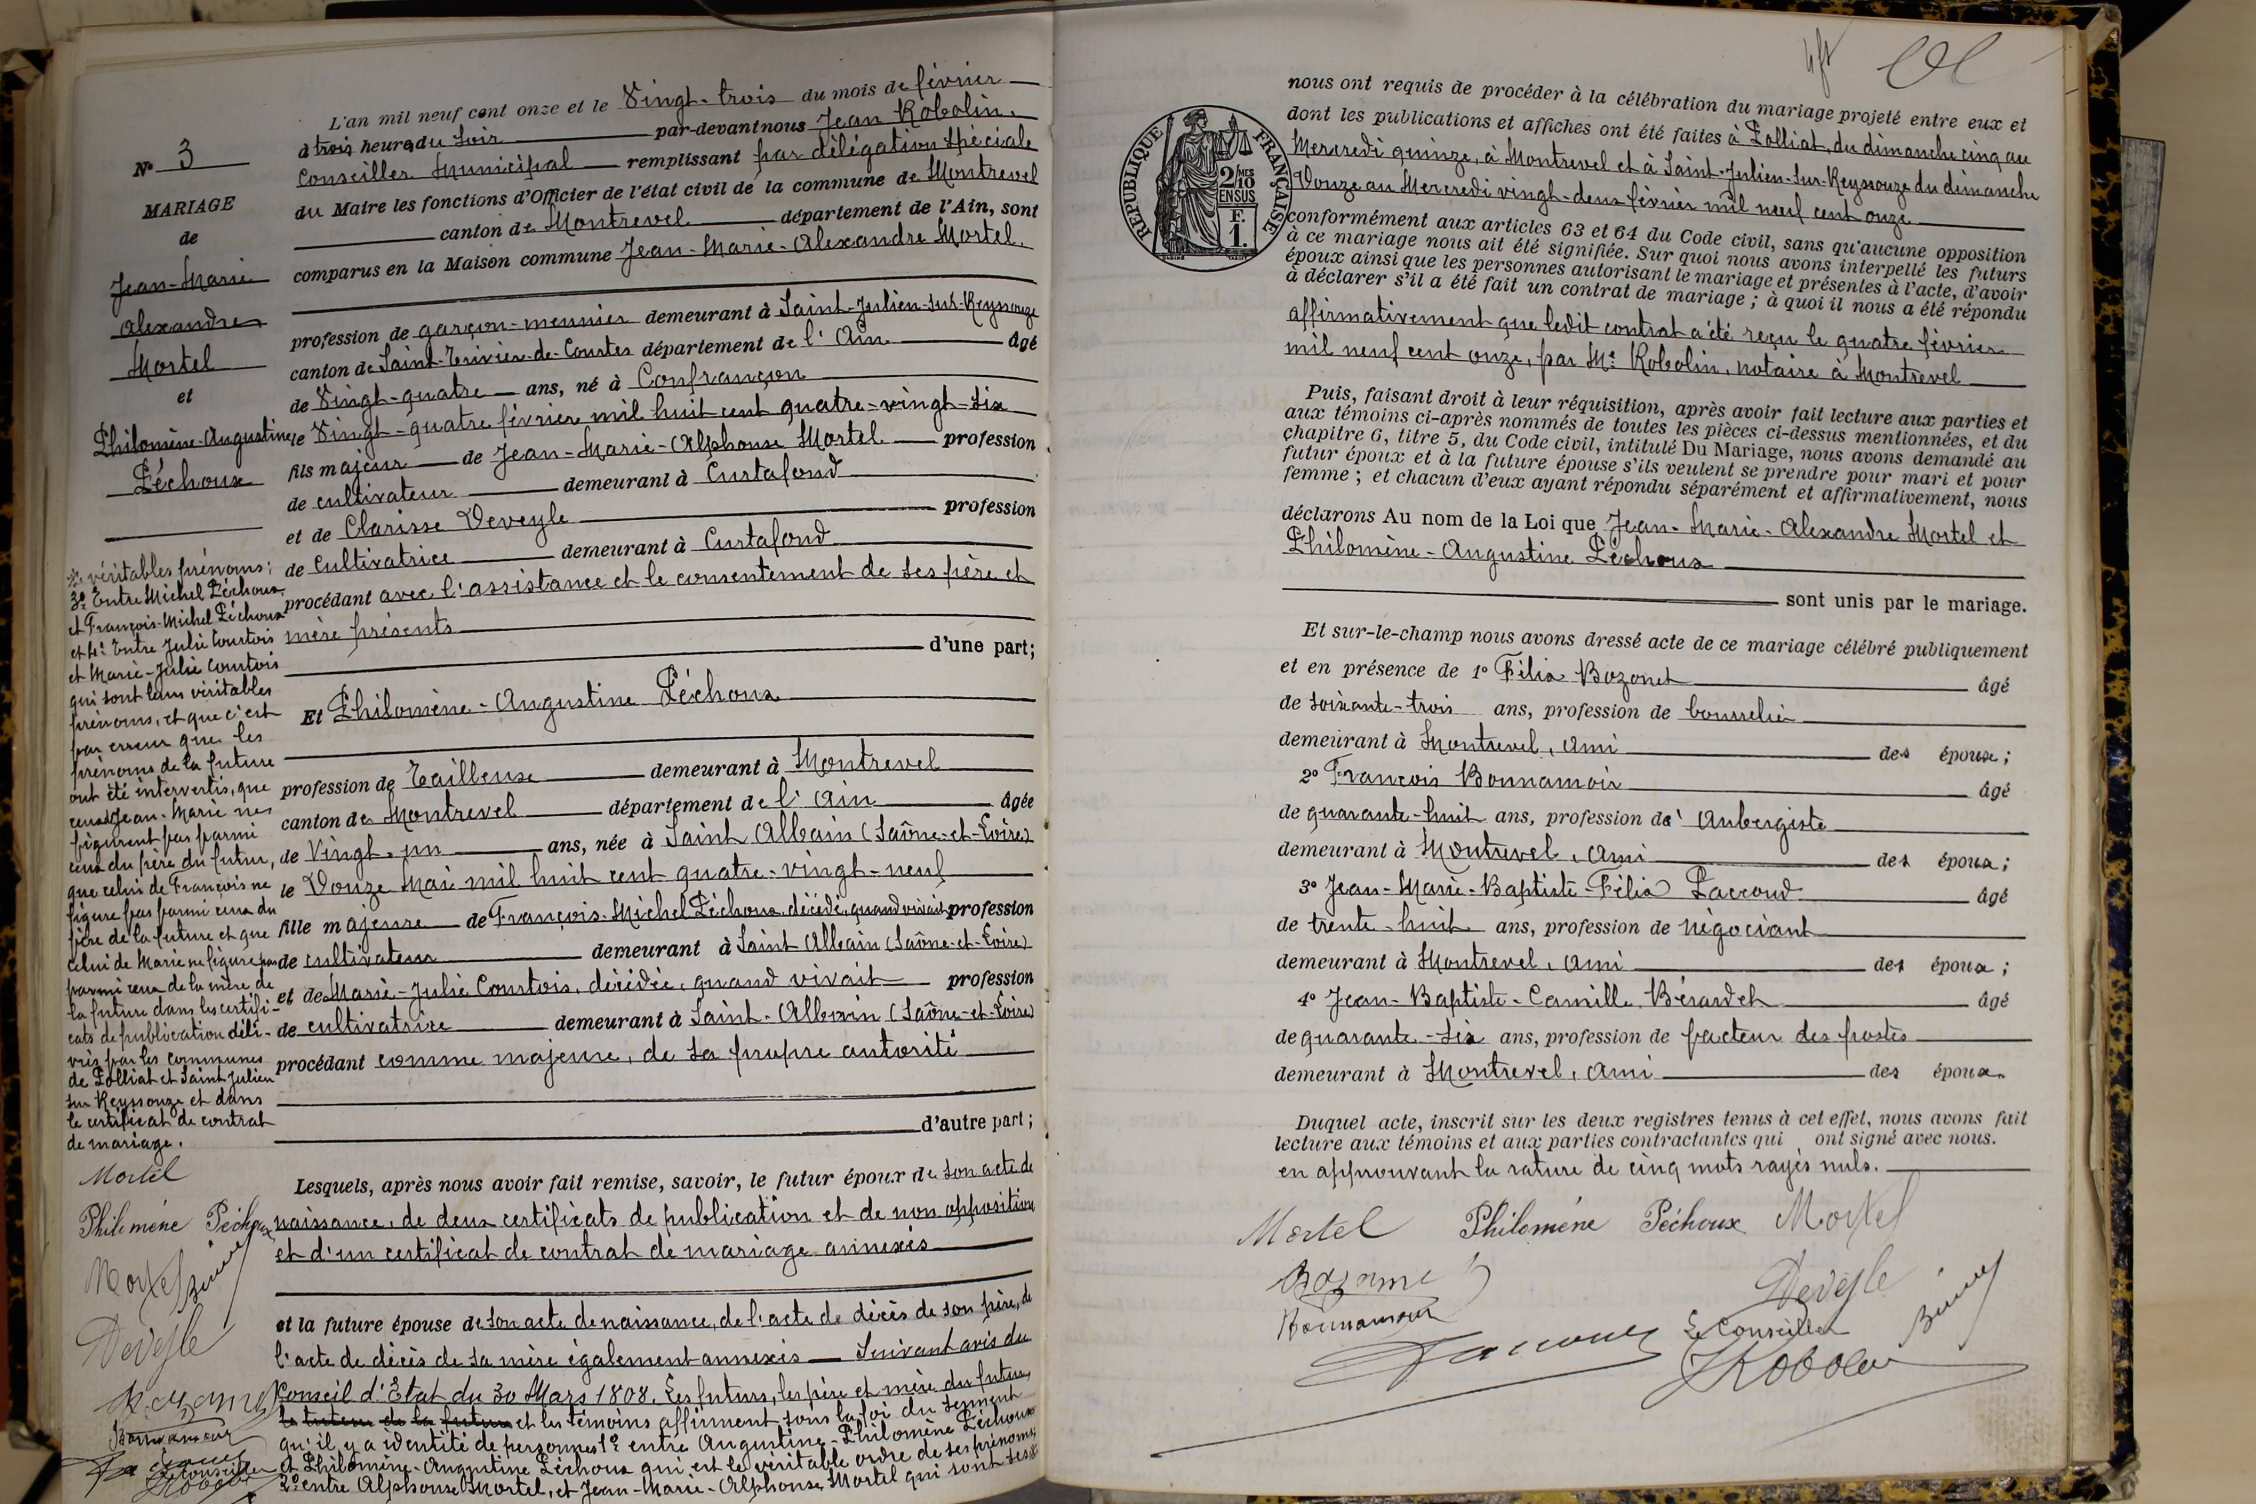 L'an mil neuf cent onze et le Vingt-trois du mois de février
à trois heures du soir par-devant nous Jean Robolin,
Conseiller Municipal remplissant par délégation spéciale
du Maire les fonctions d'Officier de l'état civil de la commune de Montrevel
canton de Montrevel département de l'Ain, sont
comparus en la Maison commune Jean-Marie-Alexandre Mortel
profession de garçon-meunier demeurant à Saint-Julien-sur-Reyssouze
canton de Saint-Trivier-de-Courtes département de l'Ain âgé
de Vingt-quatre ans, né à Confrançon
le Vingt-quatre février mil huit cent quatre-vingt-six
fils majeur de Jean-Marie-Alphonse Mortel profession
de cultivateur demeurant à Curtafond
et de Clarisse Deveyle profession
de cultivatrice demeurant à Curtafond
procédant avec l'assistance et le consentement de ses père et
mère présents
d'une part;
Et Philomène-Augustine Péchoux
profession de Tailleuse demeurant à Montrevel
canton de Montrevel département de l'Ain âgée
de Vingt-un ans, née à Saint Albain (Saône-et-Loire)
le Douze Mai mil huit cent quatre-vingt-neuf
fille majeure de François-Michel Péchoux, décédé, quand vivait profession
de cultivateur demeurant à Saint Albain (Saône-et-Loire)
et de Marie-Julie Courtois, décédée, quand vivait profession
de cultivatrice demeurant à Saint-Albain (Saône-et-Loire)
procédant comme majeure, de sa propre autorité
d'autre part;
Lesquels, après nous avoir fait remise, savoir, le futur époux de son acte de
naissance, de deux certificats de publication et de non opposition
et d'un certificat de contrat de mariage annexés
et la future épouse de son acte de naissance, de l'acte de décès de son père, de
l'acte de décès de sa mère également annexés Suivant avis du
Conseil d'Etat du 30 Mars 1808. Les futurs, les père et mère du futur,
le tuteur de la future et les témoins affirment sous la foi du serment
qu'il y a identité de personnes 1° entre Augustine-Philomène Péchoux
et Philomène-Augustine Péchoux qui est le véritable ordre de ses prénoms;
2° entre Alphonse Mortel, et Jean-Marie-Alphonse Mortel qui sont ses
N° 3
MARIAGE
de
Jean-Marie
Alexandre
Mortel
et
Philomène-Augustine
Péchoux
véritables prénoms;
3° Entre Michel Péchoux
et François-Michel Péchoux
et 4° Entre Julie Courtois
et Marie-Julie Courtois
qui sont leurs véritables
prénoms, et que c'est
par erreur que les
prénoms de la future
ont été intervertis, que
ceux de Jean-Marie ne
figurent pas parmi
ceux du père du futur,
que celui de François ne
figure pas parmi ceux du
père de la future et que
celui de Marie ne figure pas
parmi ceux de la mère de
la future dans les certifi-
cats de publication déli-
vrés par les communes
de Polliat et Saint Julien
sur Reyssouze et dans
le certificat de contrat
de mariage.
Mortel
Philomène Péchoux
Mortel
Deveyle
Bozonet
Bonnamour
Le Conseiller
Robolin
RÉPUBLIQUE FRANÇAISE
2/10 MES
EN SUS
F.
1.
nous ont requis de procéder à la célébration du mariage projeté entre eux et
dont les publications et affiches ont été faites à Polliat, du dimanche cinq au
Mercredi quinze, à Montrevel et à Saint-Julien-sur-Reyssouze du dimanche
Douze au Mercredi vingt-deux février mil neuf cent onze
conformément aux articles 63 et 64 du Code civil, sans qu'aucune opposition
à ce mariage nous ait été signifiée. Sur quoi nous avons interpellé les futurs
époux ainsi que les personnes autorisant le mariage et présentes à l'acte, d'avoir
à déclarer s'il a été fait un contrat de mariage; à quoi il nous a été répondu
affirmativement que ledit contrat a été reçu le quatre février
mil neuf cent onze, par Me Robolin, notaire à Montrevel
Puis, faisant droit à leur réquisition, après avoir fait lecture aux parties et
aux témoins ci-après nommés de toutes les pièces ci-dessus mentionnées, et du
chapitre 6, titre 5, du Code civil, intitulé Du Mariage, nous avons demandé au
futur époux et à la future épouse s'ils veulent se prendre pour mari et pour
femme; et chacun d'eux ayant répondu séparément et affirmativement, nous
déclarons Au nom de la Loi que Jean-Marie-Alexandre Mortel et
Philomène-Augustine Péchoux
sont unis par le mariage.
Et sur-le-champ nous avons dressé acte de ce mariage célébré publiquement
et en présence de 1° Félix Bozonet âgé
de soixante-trois ans, profession de bourrelier
demeurant à Montrevel, ami des époux;
2° François Bonnamour âgé
de quarante-huit ans, profession d'Aubergiste
demeurant à Montrevel, ami des époux;
3° Jean-Marie-Baptiste-Félix Paccoud âgé
de trente-huit ans, profession de négociant
demeurant à Montrevel, ami des époux;
4° Jean-Baptiste-Camille Bérardet âgé
de quarante-six ans, profession de facteur des postes
demeurant à Montrevel, ami des époux
Duquel acte, inscrit sur les deux registres tenus à cet effet, nous avons fait
lecture aux témoins et aux parties contractantes qui ont signé avec nous.
en approuvant la rature de cinq mots rayés nuls.
Mortel Philomène Péchoux Mortel
Deveyle
Bonnamour
Le Conseiller
JRobolin